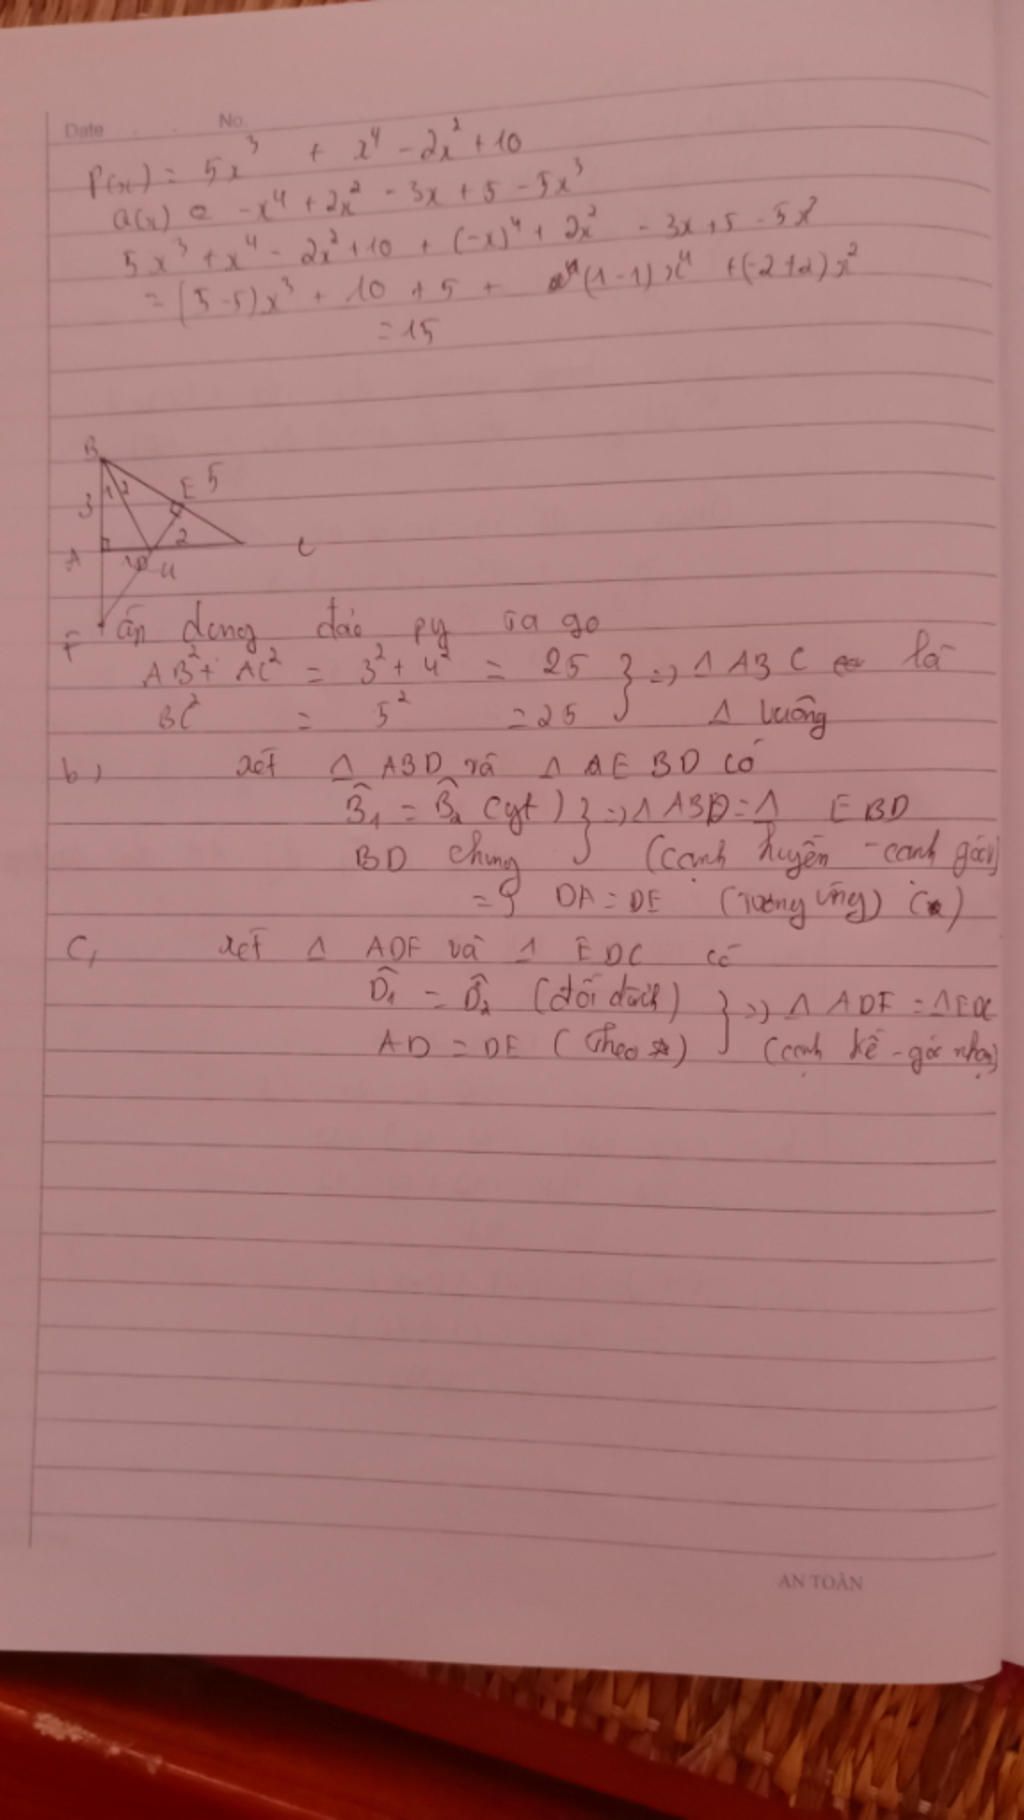 Date No.
P(x) = 5x³ + x⁴ - 2x² + 10
Q(x) = -x⁴ + 2x² - 3x + 5 - 5x³
5x³ + x⁴ - 2x² + 10 + (-x)⁴ + 2x² - 3x + 5 - 5x³
= (5-5)x³ + 10 + 5 + (1-1)x⁴ + (-2+2)x²
= 15
B
E 5
3 1 2
2
A C
1 D 4
F
dụng đảo py ta go
AB² + AC² = 3² + 4² = 25 } => Δ ABC là
BC² = 5² = 25 Δ vuông
b, xét Δ ABD và Δ EBD có
B̂₁ = B̂₂ (gt) } => Δ ABD = Δ EBD
BD chung (cạnh huyền - cạnh góc)
=> DA = DE (tương ứng) (*)
c, xét Δ ADF và Δ EDC có
D̂₁ = D̂₂ (đối đỉnh) } => Δ ADF = Δ EDC
AD = DE (theo *) (cạnh kề - góc nhọn)
AN TOÀN